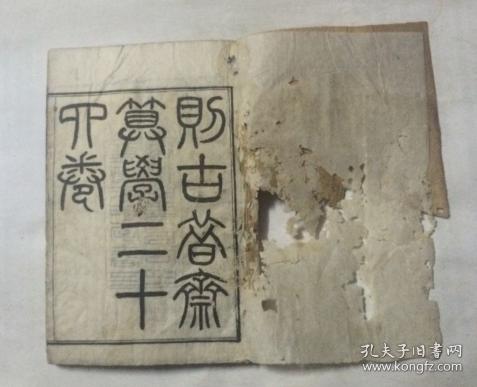 則古昔齋
算學二十
四卷
孔夫子旧书网
www.kongfz.com